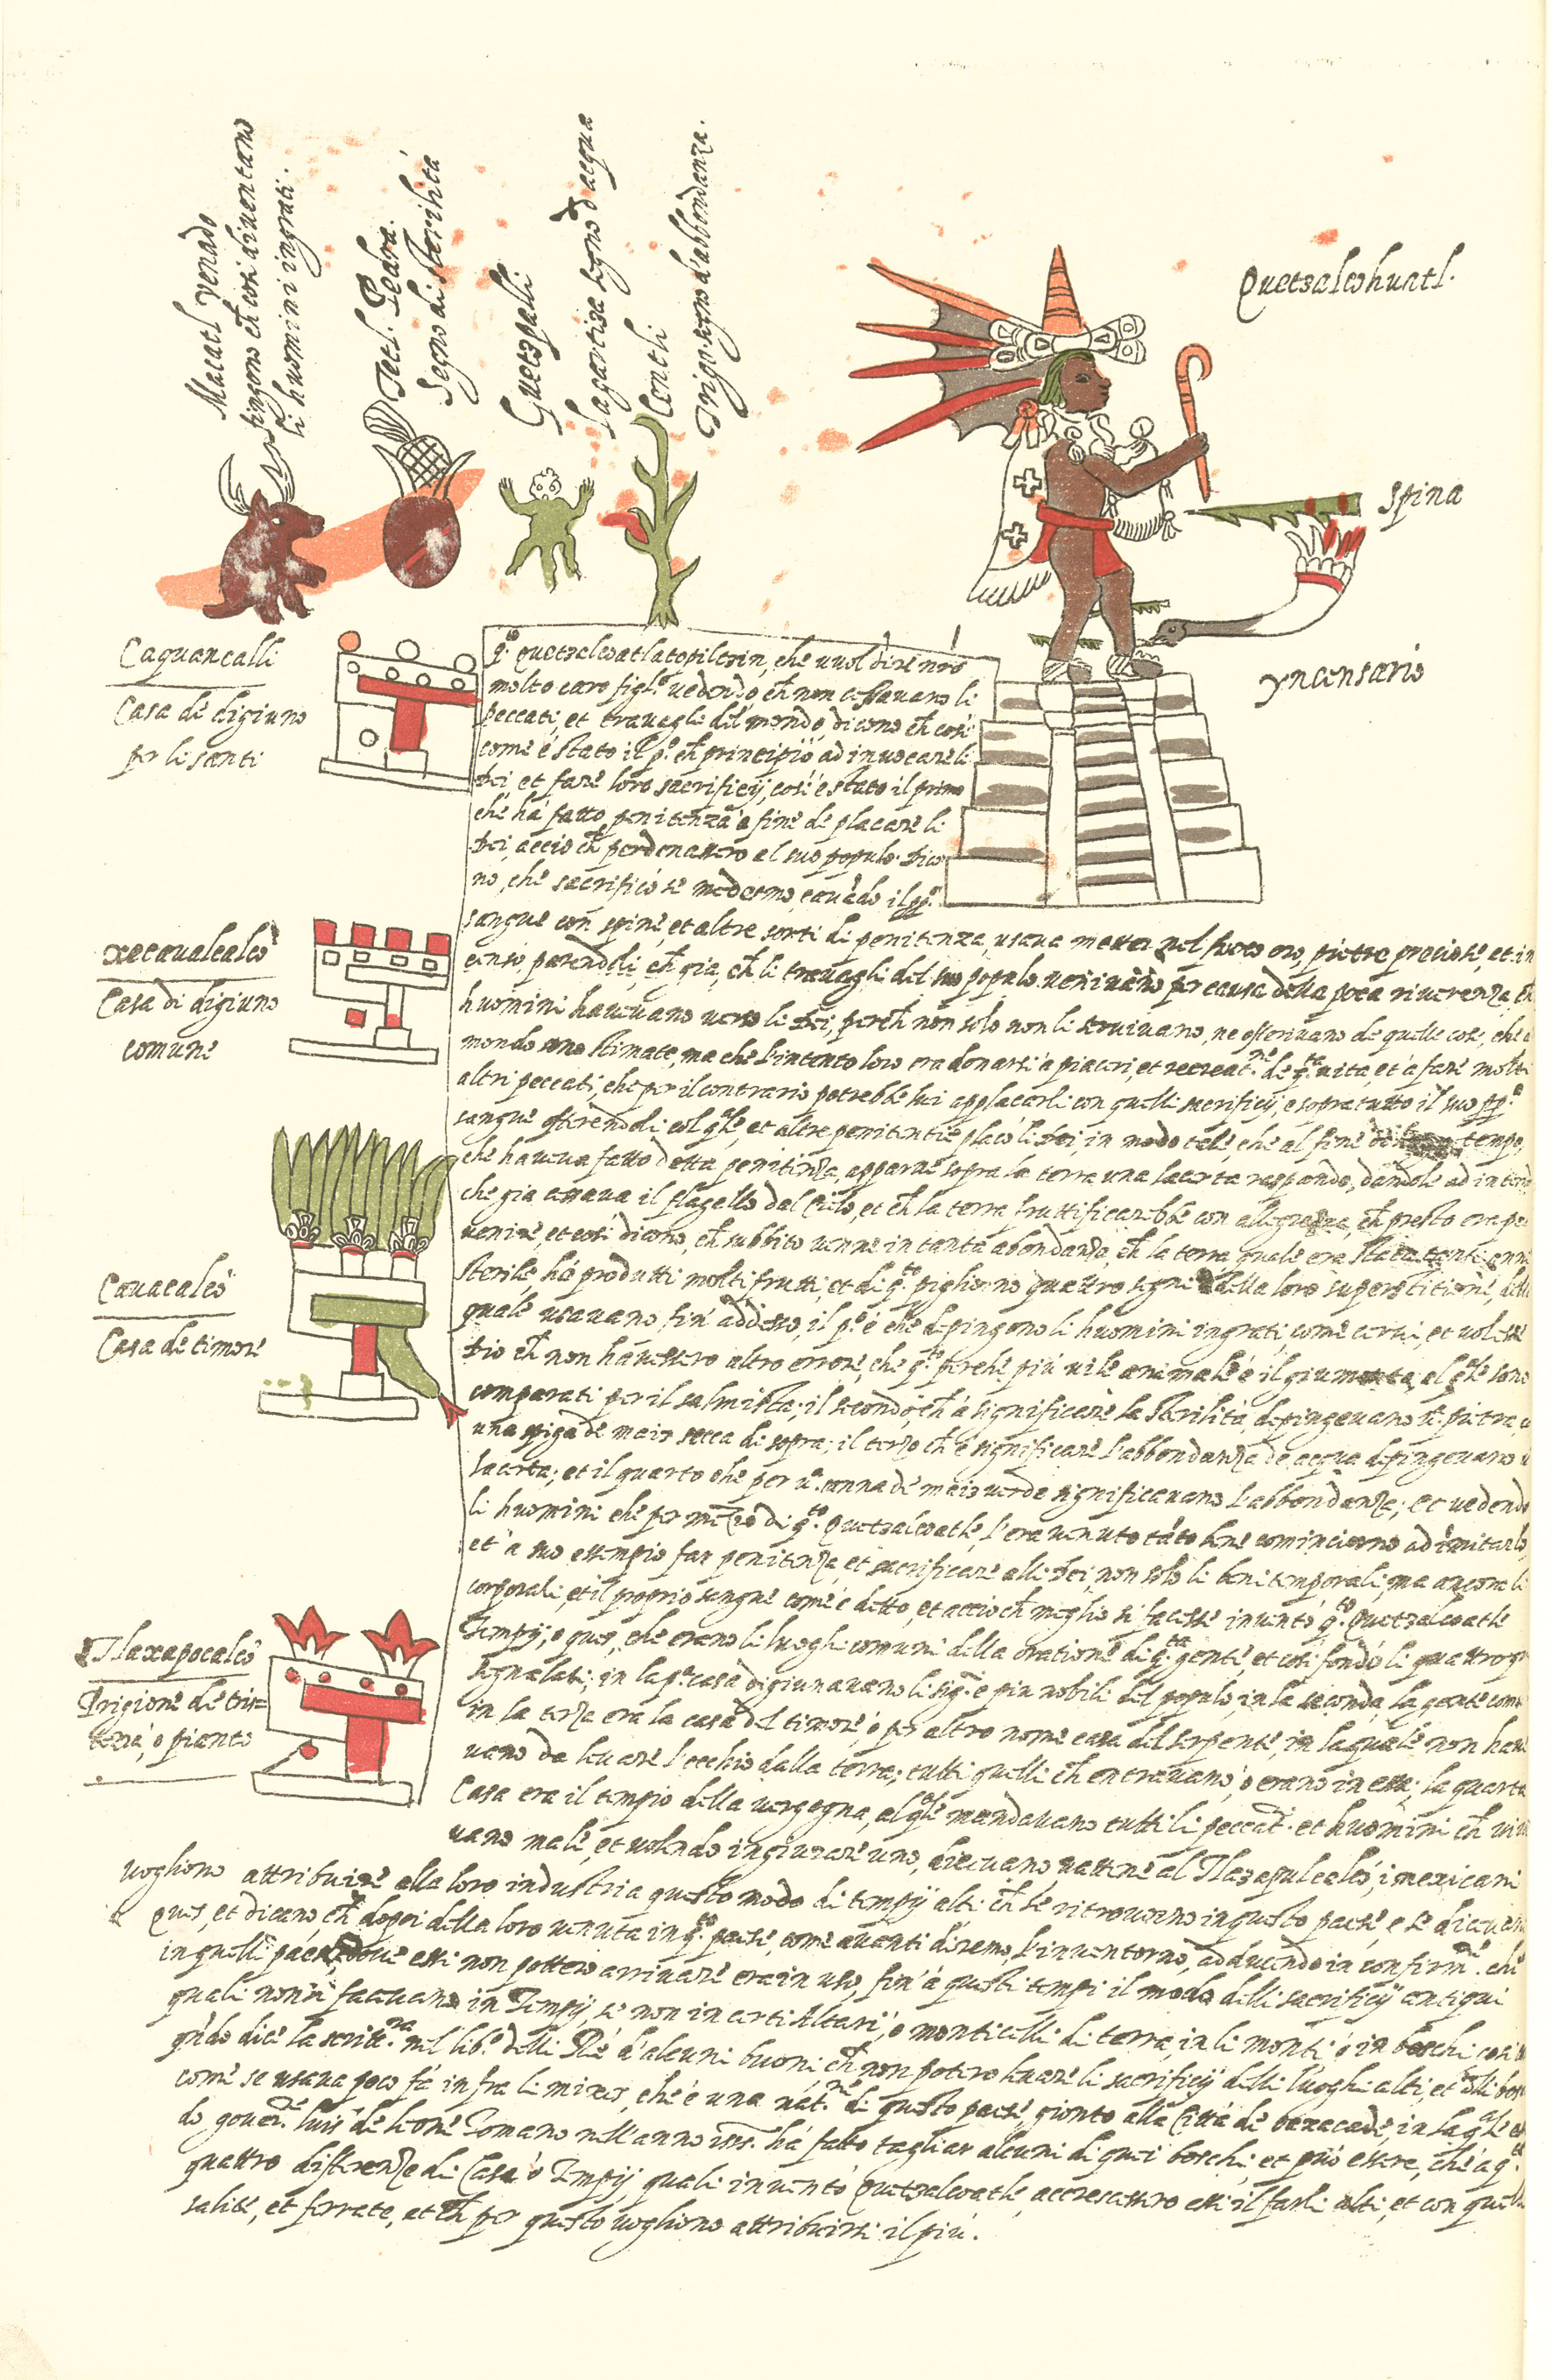 Macatl venado
fingono ch̃ cosi diventano
li huomini ingrati.
Tetl. Pedra.
Segno di sterilità
Guetspalli
Lagartisa segno d'acqua
Centli
Trigo. segno d'abbondanza.
Quetzalcohuatl.
spina
yncensario
Caquancalli
Casa de digiuno
per li santi
q.to Quetzalcoatlatopiltzin, che vuol dire n̄ro
molto caro figl.o vedendo ch̃ non cessavano li
peccati, et travagli del mondo, dicono ch̃ cosi
come é stato il p.o ch̃ principiò ad invocare li
Dei et fare loro sacrificij, cosi é stato il primo
che há fatto penitenza á fine de placare li
Dei, accio ch̃ perdonassero al suo populo. Dico
no, che sacrificó se medesmo, cavãdo il pp.o
sangue con spine, et altre sorti di penitenza, usava metter nel fuoco oro, pietre preciose, et in
censo, parendoli, ch̃ gia, ch̃ li travagli del suo populo venivano per causa della poca riverenza, ch̃
huomini havevano verso li Dei, perch̃ non solo non li servivano, ne offerivano de quelle cose, che
mondo sono stimate, ma che l'intento loro era donarsi á piaceri, et recreat.ne de q.ta vita, et á fare molti
altri peccati, che per il contrario potrebbe lui applacarli con quelli sacrificij, e sopra tutto il suo pp.o
sangue offerendoli col q̃le, et altre penitentie placó li Dei, in modo tale, che al fine de tempo,
che haveva fatto detta penitenza, apparve sopra la terra una lacerta raspando, dandole ad intend
che gia cessava il flagello dal Cielo, et ch̃ la terra fruttificarebbe con allegrezza, ch̃ presto era per
venire, et cosi dicono, ch̃ subbito venne in tanta abondanza, ch̃ la terra, quale era stata tanti anni
sterile, há produtti molti frutti, et di q.to pigliorno quattro segni della loro superstitione, delli
quale usavano, fin' addesso, il p.o é ch̃e depingono li huomini ingrati, come cervi, et volesse
Dio ch̃ non havessero altro errore, che q.to perche più vile animale é il giumento, al q̃le sono
comparati per il salmista; il secondo ch̃ á significare la sterilità, depingevano u.a pietra, c
una spiga de mais secca di sopra; il terzo ch̃ é significare l'abbondanza de acqua depingevano u
lacerta; et il quarto che per u.a canna de mais verde significavano l'abbondanza; et vedendo
li huomini che per mezzo di q.to Quetzalcoatle, l'era venuto tãto bene cominciorno ad imitarlo,
et á suo essempio far penitenza, et sacrificare alli Dei, non solo li beni temporali, ma ancora li
corporali, et il proprio sangue come é detto, et accio ch̃ meglio si facesse inventó q.to Quetzalcoatle
Tempij, o ques, che erano li luoghi comuni della oratione di q.ta gente, et cosi fondó li quattro q
segnalati; in la p.a casa digiunavano li sig.ri e piu nobili del populo, in la seconda, la gente comu
in la terza era la casa del timore, ó per altro nome casa del serpente, in la quale non have
vano da levare l'occhio dalla terra; tutti quelli ch̃ entravano, o erano in essa; la quarta
Casa era il tempio della vergogna, al q̃le mandavano tutti li peccat.i et huomini ch̃ vive
vano male, et volendo ingiurare uno, dicevano, vattene al Tlazapulcalco, i mexicani
vogliono attribuire alla loro industria questo modo di tempij alti ch̃ se ritrovorno in questo paese, e se dicevano
Ques, et dicano, ch̃ dopoi della loro venuta in q.to paese, come avanti diremo, l'inventorno, adducendo in confirm.ne che
in quelli paesi, dove essi non potero arrivare era in uso, fin' á questi tempi il modo delli sacrificij antiqui
quali non si facevano in Tempij, se non in certi Altari, o monticelli di terra, in li monti ó in boschi cosi
q̃ndo dice la scritt.ra nel lib.o delli Ré d'alcuni buoni, ch̃ non potero levare li sacrificij delli luoghi alti, et delli bos
come se usava poco fa infra li mixes, che é una nat.ne di questo paese, gionto alla Città de oaxaca, de, in la q̃le
do govern.re luis de leone Romano nell'anno há fatto tagliar alcuni di quei boschi, et puó essere, che á q.te
quattro differenze di Case ó Tempij quali inventó Quetzalcoatle, accrescessero essi il farli alti, et con quelle
salite, et ferrate, et ch̃ per questo vogliono attribuirsi il piu.
xecaualcalco
Casa di digiuno
comune
Couacalco
Casa de timore
Tlaxapocalco
Prigione de tris=
tezza, o pianto